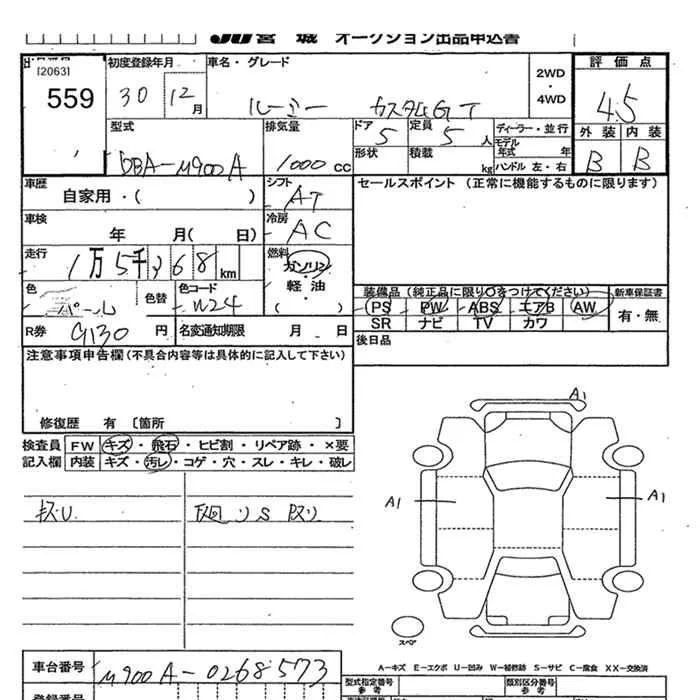 JU 宮城 オークション出品申込書
[2063]
559
初度登録年月
30 12月
車名・グレード
ルーミー カスタムG T
2WD
・
4WD
評価点
4.5
外装 内装
B B
型式
DBA-M900A
排気量
1000 CC
ドア
5
定員
5人
形状
積載
kg
ディーラー・並行
モデル年式 年
ハンドル 左・右
車歴
自家用・( )
シフト
AT
セールスポイント (正常に機能するものに限ります)
車検
年 月( 日)
冷房
AC
走行
1万5千368km
燃料
ガソリン
軽油
( )
色
パール
色替
色コード
W24
装備品(純正品に限り○をつけてください)
PS PW ABS エアB AW
SR ナビ TV カワ
新車保証書
有・無
R券
9130円
名変通知期限 月 日
後日品
注意事項申告欄(不具合内容等は具体的に記入して下さい)
修復歴 有 〔箇所 〕
検査員
記入欄
FW キズ・飛石・ヒビ割・リペア跡・×要
内装 キズ・汚レ・コゲ・穴・スレ・キレ・破レ
A1
A1
A1
スペア
A-キズ E-エクボ U-凹み W-補修跡 S-サビ C-腐食 XX-交換済
車台番号
M900A-0268573
型式指定番号
参考
類別区分番号
参考
登録番号